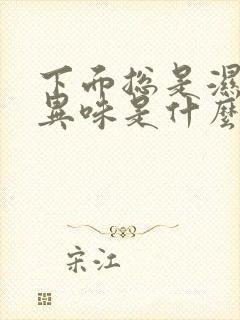 下而總是濕
異味是什麼
宋江